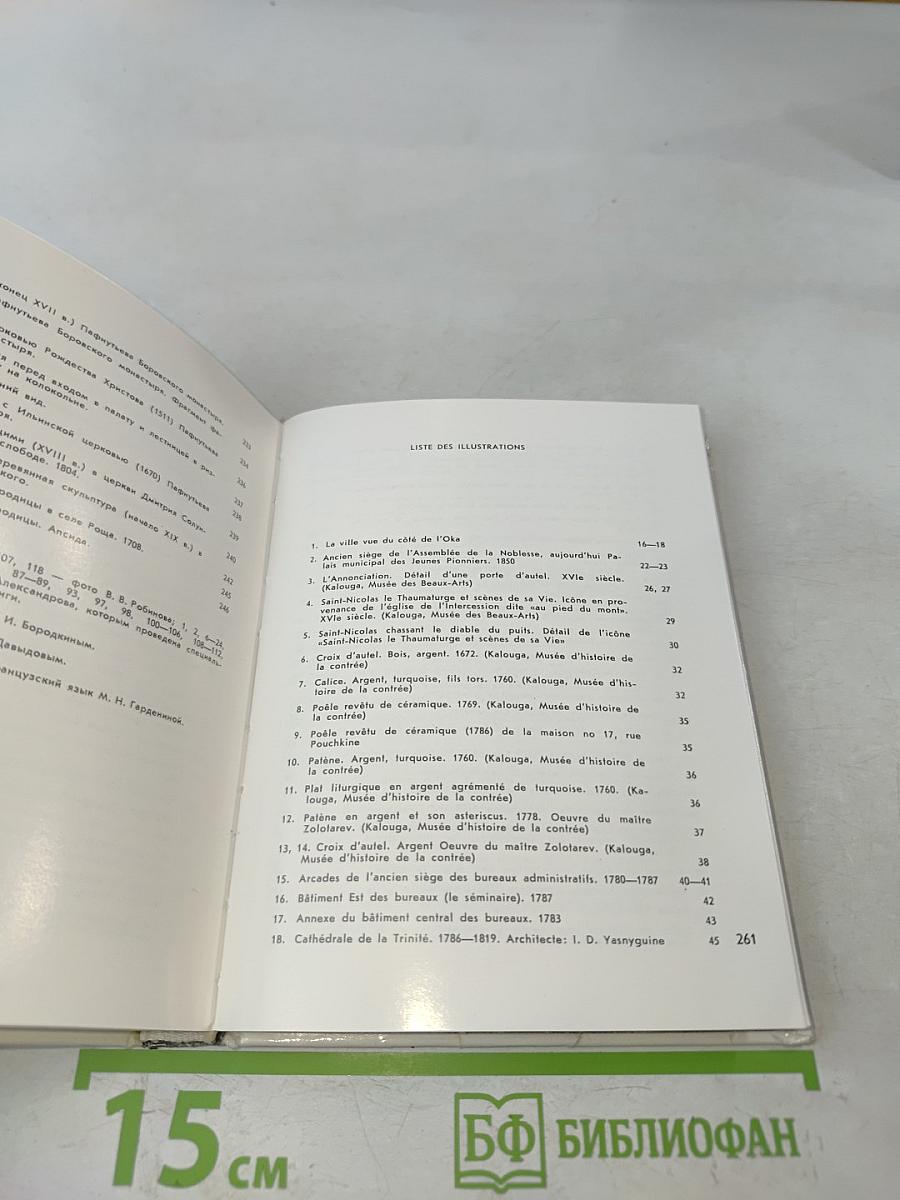 конец XVII в.) Пафнутьева Боровского монастыря.
Пафнутьева Боровского монастыря. Фрагмент фа-
233
церковью Рождества Христова (1511) Пафнутьева
стыря.
234
я перед входом в палату и лестницей в риз-
на колокольне.
236
ний вид.
237
с Ильинской церковью (1670) Пафнутьева
238
щими (XVIII в.) в церкви Дмитрия Солун-
слободе. 1804.
239
деревянная скульптура (начало XIX в.) в
240
родицы в селе Роща. 1708.
242
родицы. Апсида.
245
246
07, 118 — фото В. В. Робинова; 1, 2, 6—24
87—89, 93, 97, 98, 100—106, 108—112,
Александрова, которым проведена специаль-
И. Бородкиным.
Давыдовым.
французский язык М. Н. Гардениной.
LISTE DES ILLUSTRATIONS
1. La ville vue du côté de l'Oka 16—18
2. Ancien siège de l'Assemblée de la Noblesse, aujourd'hui Pa-
lais municipal des Jeunes Pionniers. 1850 22—23
3. L'Annonciation. Détail d'une porte d'autel. XVIe siècle.
(Kalouga, Musée des Beaux-Arts) 26, 27
4. Saint-Nicolas le Thaumaturge et scènes de sa Vie. Icône en pro-
venance de l'église de l'Intercession dite «au pied du mont».
XVIe siècle. (Kalouga, Musée des Beaux-Arts) 29
5. Saint-Nicolas chassant le diable du puits. Détail de l'icône
«Saint-Nicolas le Thaumaturge et scènes de sa Vie» 30
6. Croix d'autel. Bois, argent. 1672. (Kalouga, Musée d'histoire de
la contrée) 32
7. Calice. Argent, turquoise, fils tors. 1760. (Kalouga, Musée d'his-
toire de la contrée) 32
8. Poêle revêtu de céramique. 1769. (Kalouga, Musée d'histoire de
la contrée) 35
9. Poêle revêtu de céramique (1786) de la maison no 17, rue
Pouchkine 35
10. Patène. Argent, turquoise. 1760. (Kalouga, Musée d'histoire de
la contrée) 36
11. Plat liturgique en argent agrémenté de turquoise. 1760. (Ka-
louga, Musée d'histoire de la contrée) 36
12. Patène en argent et son asteriscus. 1778. Oeuvre du maître
Zolotarev. (Kalouga, Musée d'histoire de la contrée) 37
13, 14. Croix d'autel. Argent Oeuvre du maître Zolotarev. (Kalouga,
Musée d'histoire de la contrée) 38
15. Arcades de l'ancien siège des bureaux administratifs. 1780—1787 40—41
16. Bâtiment Est des bureaux (le séminaire). 1787 42
17. Annexe du bâtiment central des bureaux. 1783 43
18. Cathédrale de la Trinité. 1786—1819. Architecte: I. D. Yasnyguine 45
261
15 см
БФ БИБЛИОФАН